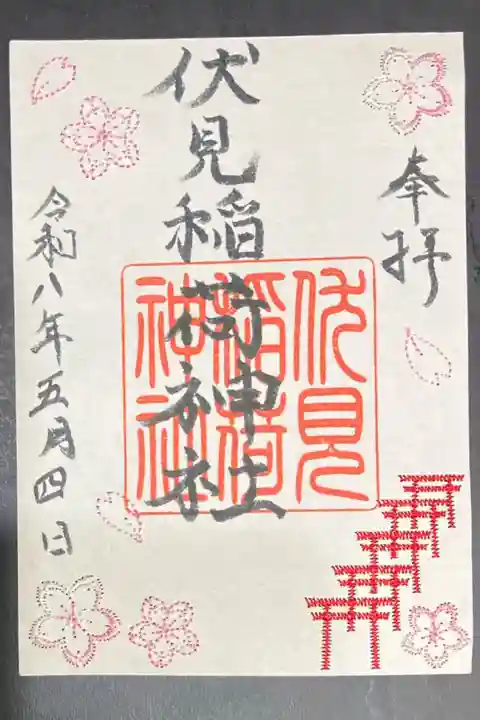 奉拝
伏見稲荷神社
伏見
稲荷
神社
令和八年五月四日